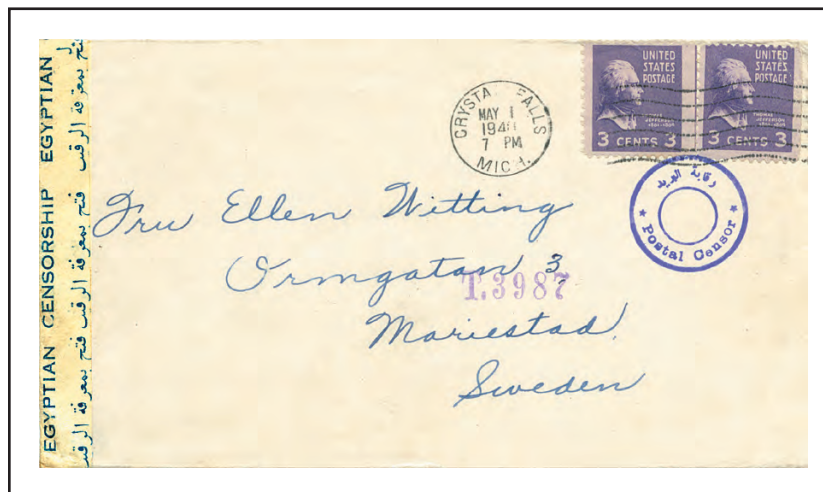 EGYPTIAN CENSORSHIP EGYPTIAN
فتح بمعرفة الرقيب فتح بمعرفة الرقيب فتح بمعرفة
CRYSTAL FALLS
MAY 1
7 PM
MICH.
UNITED
STATES
POSTAGE
3 CENTS 3
UNITED
STATES
POSTAGE
THOMAS
JEFFERSON
3 CENTS 3
رقابة البريد
* Postal Censor *
Fru Ellen Witting
Ormgatan 3
T.3987
Mariestad.
Sweden